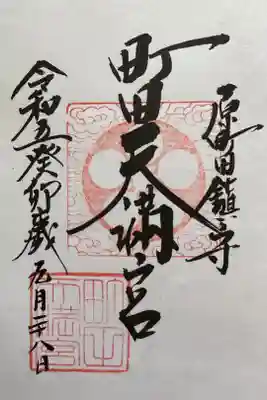 原町田鎮守
町田天満宮
令和五癸卯歳 元月二十八日